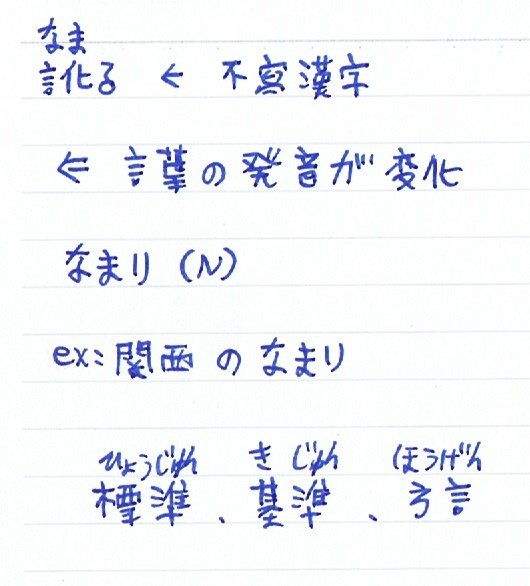 なま
訛る ← 不寫漢字
⇐ 言葉の発音が変化
なまり (N)
ex: 関西のなまり
ひょうじゅん きじゅん ほうげん
標準、基準、方言